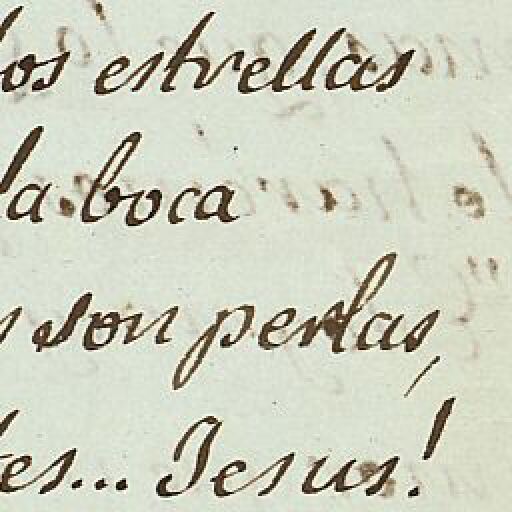 los estrellas
la boca
s son perlas,
tes... Jesus!